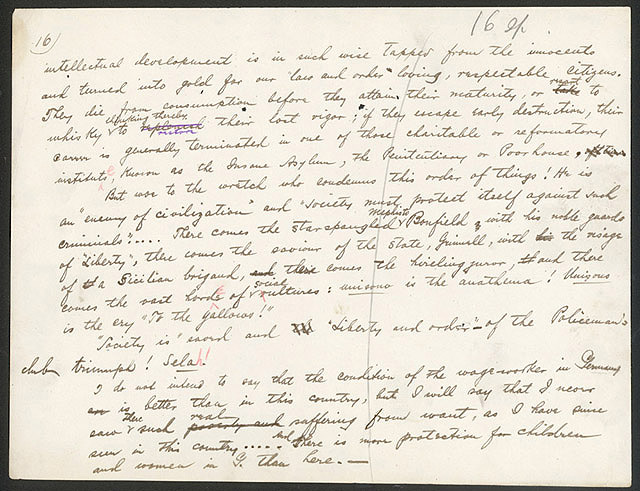 16) 16 Sp.
intellectual development is in such wise tapped from the innocents
and turned into gold for our "law and order" loving, respectable citizens.
They die from consumption before they attain their maturity, or resort take to
whisky thinking thereby to restore their lost vigor; if they escape early destruction, their
career is generally terminated in one of those charitable or reformatory
institutes, known as the Insane Asylum, the Penitentiary or Poorhouse,
But woe to the wretch who condemns this order of things! He is
an "enemy of civilization" and "society must protect itself against such
criminals"..... There comes the starspangled Mephisto Bonfield, with his noble guards
of "Liberty", there comes the saviour of the State, Grinnell, with his the visage
of a Sicilian brigand, and there comes the hireling juror, and there
comes the vast horde of social vultures: unisono is the anathema! Unisono
is the cry "To the gallows!"
"Society is" saved and "Liberty and order" – of the Policeman's
club triumph! Selah!
I do not intend to say that the condition of the wageworker in Germany
is better than in this country, but I will say that I never
saw there such real poverty and suffering from want, as I have since
seen in this country..... And there is more protection for children
and women in G. than here. —